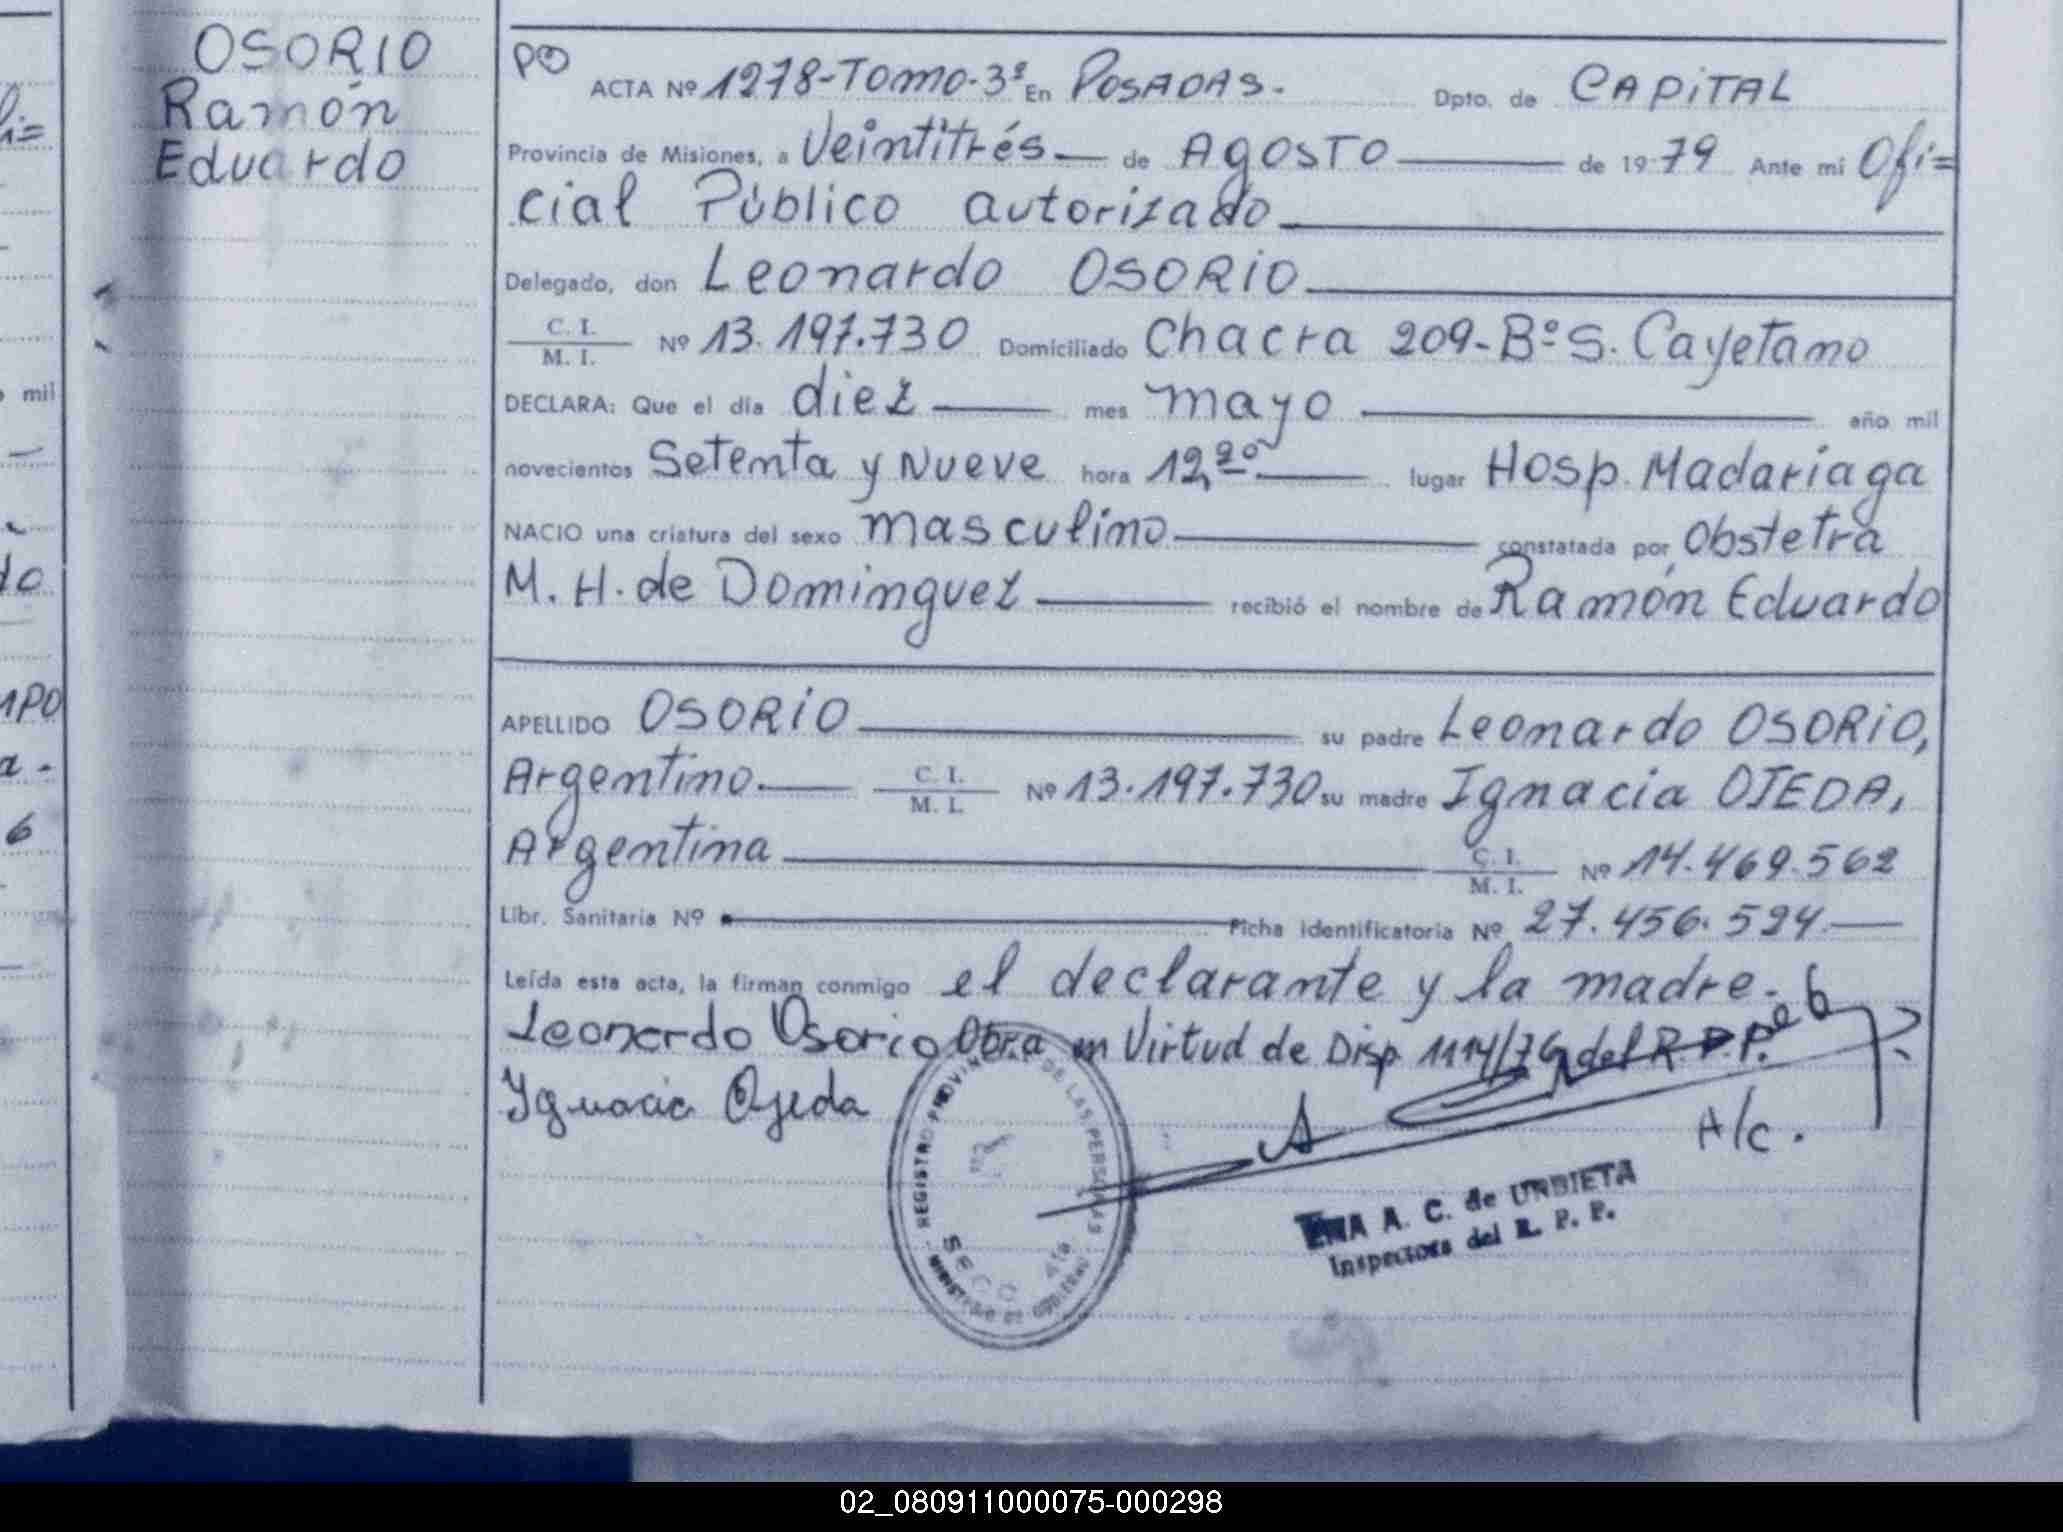 OSORIO
Ramón
Eduardo
PO
ACTA Nº 1278-Tomo-3º En POSADAS. Dpto. de CAPITAL
Provincia de Misiones, a Veintitrés de AGOSTO de 1979 Ante mi Ofi=
cial Público autorizado
Delegado, don Leonardo OSORIO
C. I.
M. I. Nº 13.197.730 Domiciliado Chacra 209-Bº S. Cayetano
DECLARA: Que el día diez mes mayo año mil
novecientos Setenta y Nueve hora 12,20 lugar Hosp. Madariaga
NACIO una criatura del sexo masculino constatada por Obstetra
M. H. de Dominguez recibió el nombre de Ramón Eduardo
APELLIDO OSORIO su padre Leonardo OSORIO,
Argentino. C. I.
M. I. Nº 13.197.730 su madre Ignacia OJEDA,
Argentina C. I.
M. I. Nº 14.469.562
Libr. Sanitaria Nº Ficha Identificatoria Nº 27.456.524
Leída esta acta, la firman conmigo el declarante y la madre.
Leonardo Osorio Obra en Virtud de Disp 1114/76 del R.P.P.
Ignacia Ojeda
A/c.
REGISTRO PROVINCIAL DE LAS PERSONAS
MINISTERIO DE GOBIERNO
A. C. de URBIETA
Inspectora del R. P. P.
mil
do
a.
6
02_080911000075-000298